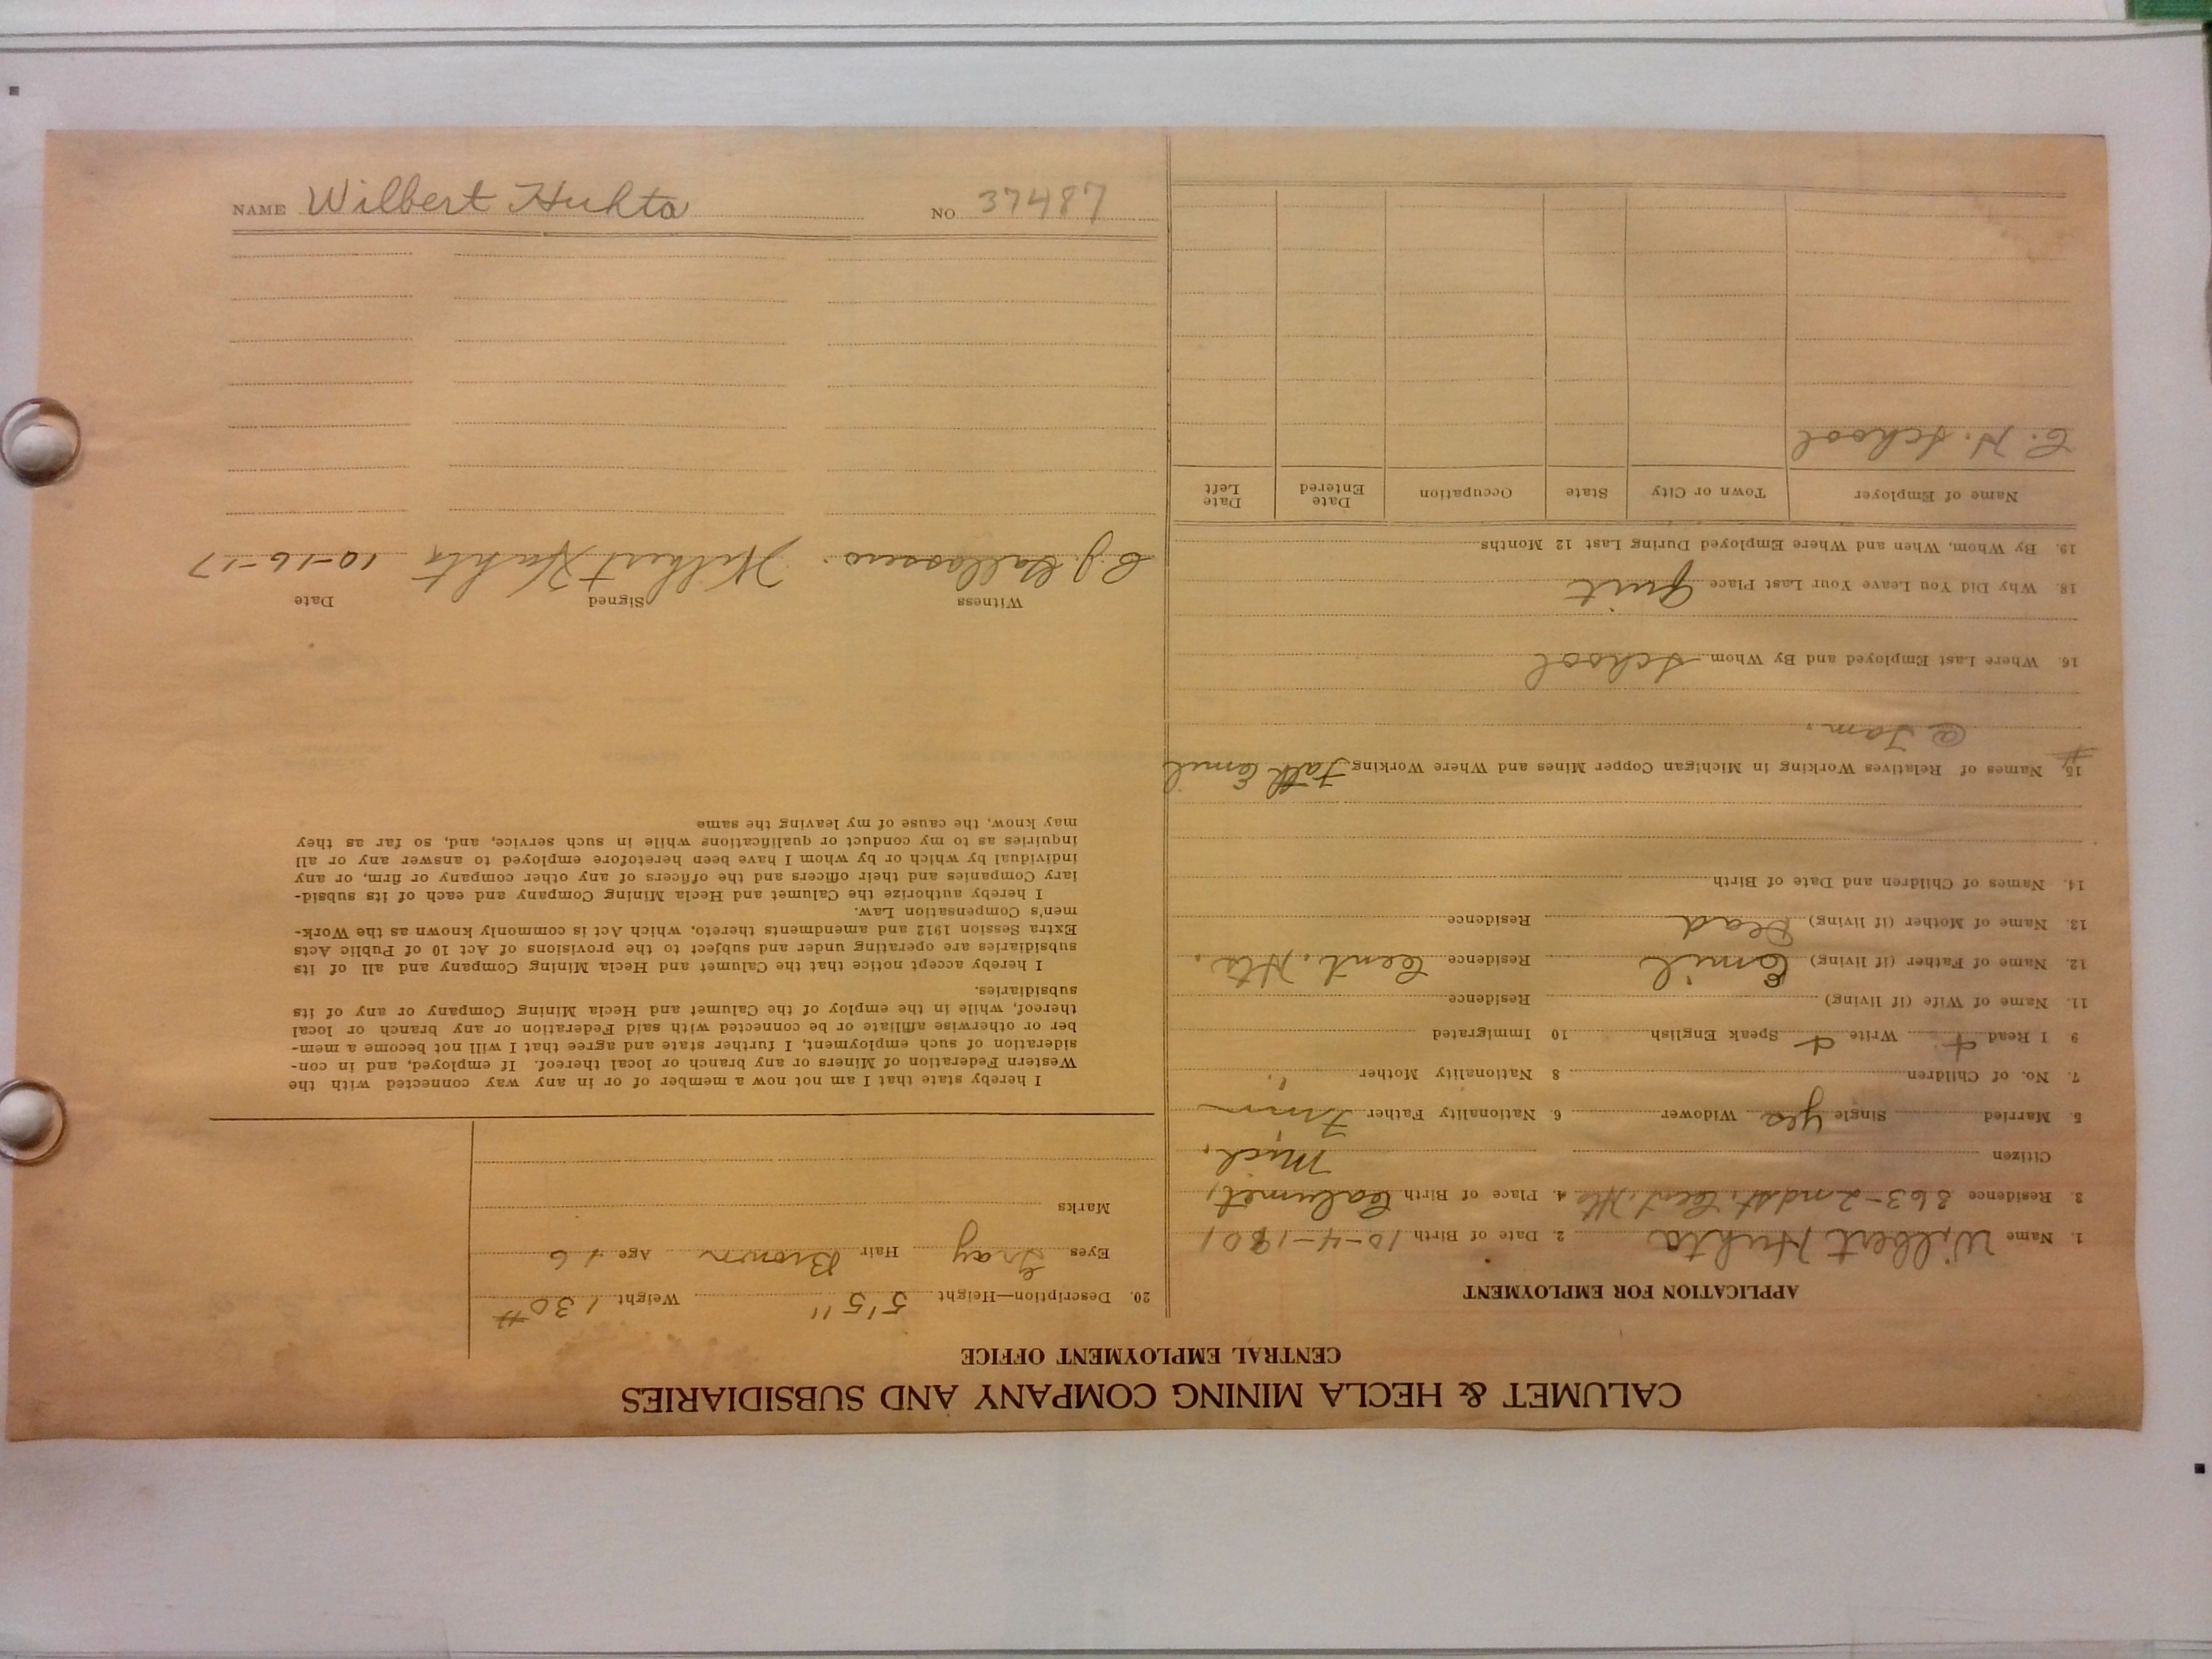 CALUMET & HECLA MINING COMPANY AND SUBSIDIARIES
CENTRAL EMPLOYMENT OFFICE
APPLICATION FOR EMPLOYMENT
1. Name Wilbert Huhta 2. Date of Birth 10-4-1901
3. Residence 363-2nd st. Cent. Hts 4. Place of Birth Calumet,
Citizen Mich.
5. Married Single yes Widower 6. Nationality Father Finn
7. No. of Children 8 Nationality Mother "
9 I Read + Write + Speak English 10 Immigrated
11. Name of Wife (if living) Residence
12. Name of Father (if living) Emil Residence Cent. Hts.
13. Name of Mother (if living) Dead Residence
14. Names of Children and Date of Birth
15. Names of Relatives Working in Michigan Copper Mines and Where Working Fath Emil
@ Tam.
16. Where Last Employed and By Whom School
18. Why Did You Leave Your Last Place Quit
19. By Whom, When and Where Employed During Last 12 Months
Name of Employer Town or City State Occupation Date Entered Date Left
C. H. School
20. Description—Height 5'5" Weight 130#
Eyes Gray Hair Brown Age 16
Marks
I hereby state that I am not now a member of or in any way connected with the
Western Federation of Miners or any branch or local thereof. If employed, and in con-
sideration of such employment, I further state and agree that I will not become a mem-
ber or otherwise affiliate or be connected with said Federation or any branch or local
thereof, while in the employ of the Calumet and Hecla Mining Company or any of its
subsidiaries.
I hereby accept notice that the Calumet and Hecla Mining Company and all of its
subsidiaries are operating under and subject to the provisions of Act 10 of Public Acts
Extra Session 1912 and amendments thereto, which Act is commonly known as the Work-
men's Compensation Law.
I hereby authorize the Calumet and Hecla Mining Company and each of its subsid-
iary Companies and their officers and the officers of any other company or firm, or any
individual by which or by whom I have been heretofore employed to answer any or all
inquiries as to my conduct or qualifications while in such service, and, so far as they
may know, the cause of my leaving the same
Witness Signed Date
Wilbert Huhta 10-16-17
NAME Wilbert Huhta NO 37487